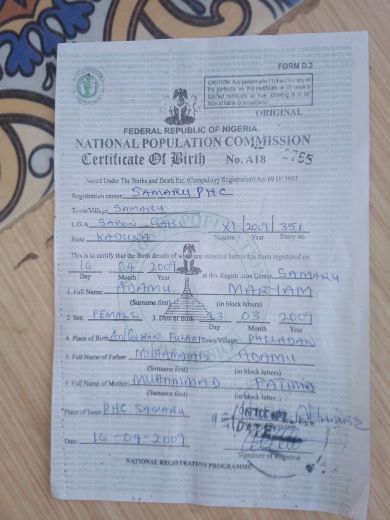 FORM D.2
CAUTION: Any person who (1) falsifies any of the particulars on this certificate or (2) uses a falsified certificate as true, knowing it to be false is liable to prosecution
ORIGINAL
FEDERAL REPUBLIC OF NIGERIA
NATIONAL POPULATION COMMISSION
Certificate Of Birth No. A18
Issued Under The Births and Death Etc. (Compulsory Registration) Act 69 Of 1992
Registration center SAMARU PHC
Town/Village SAMARU
L.G.A SABON GARI XI 2009 351
State KADUNA Volume Year Entry no.
This is to certify that the Birth details of which are recorded herein has been registered on
16 04 2009 at this Registration Center SAMARU
Day Month Year
1. Full Name: ADAMU MARYAM
(Surname first) (in block letters)
2. Sex: FEMALE 3. Date of Birth 13 03 2009
Day Month Year
4. Place of Birth Town/Village: PALLADAN
5. Full Name of Father: MUHAMMAD ADAMU
(Surname first) (in block letters)
6. Full Name of Mother: MUHAMMAD FATIMA
(Surname first) (in block letter)
Place of Issue PHC SAMARU
Date: 16-04-2009
Signature of Registrar
NATIONAL REGISTRATION PROGRAMME